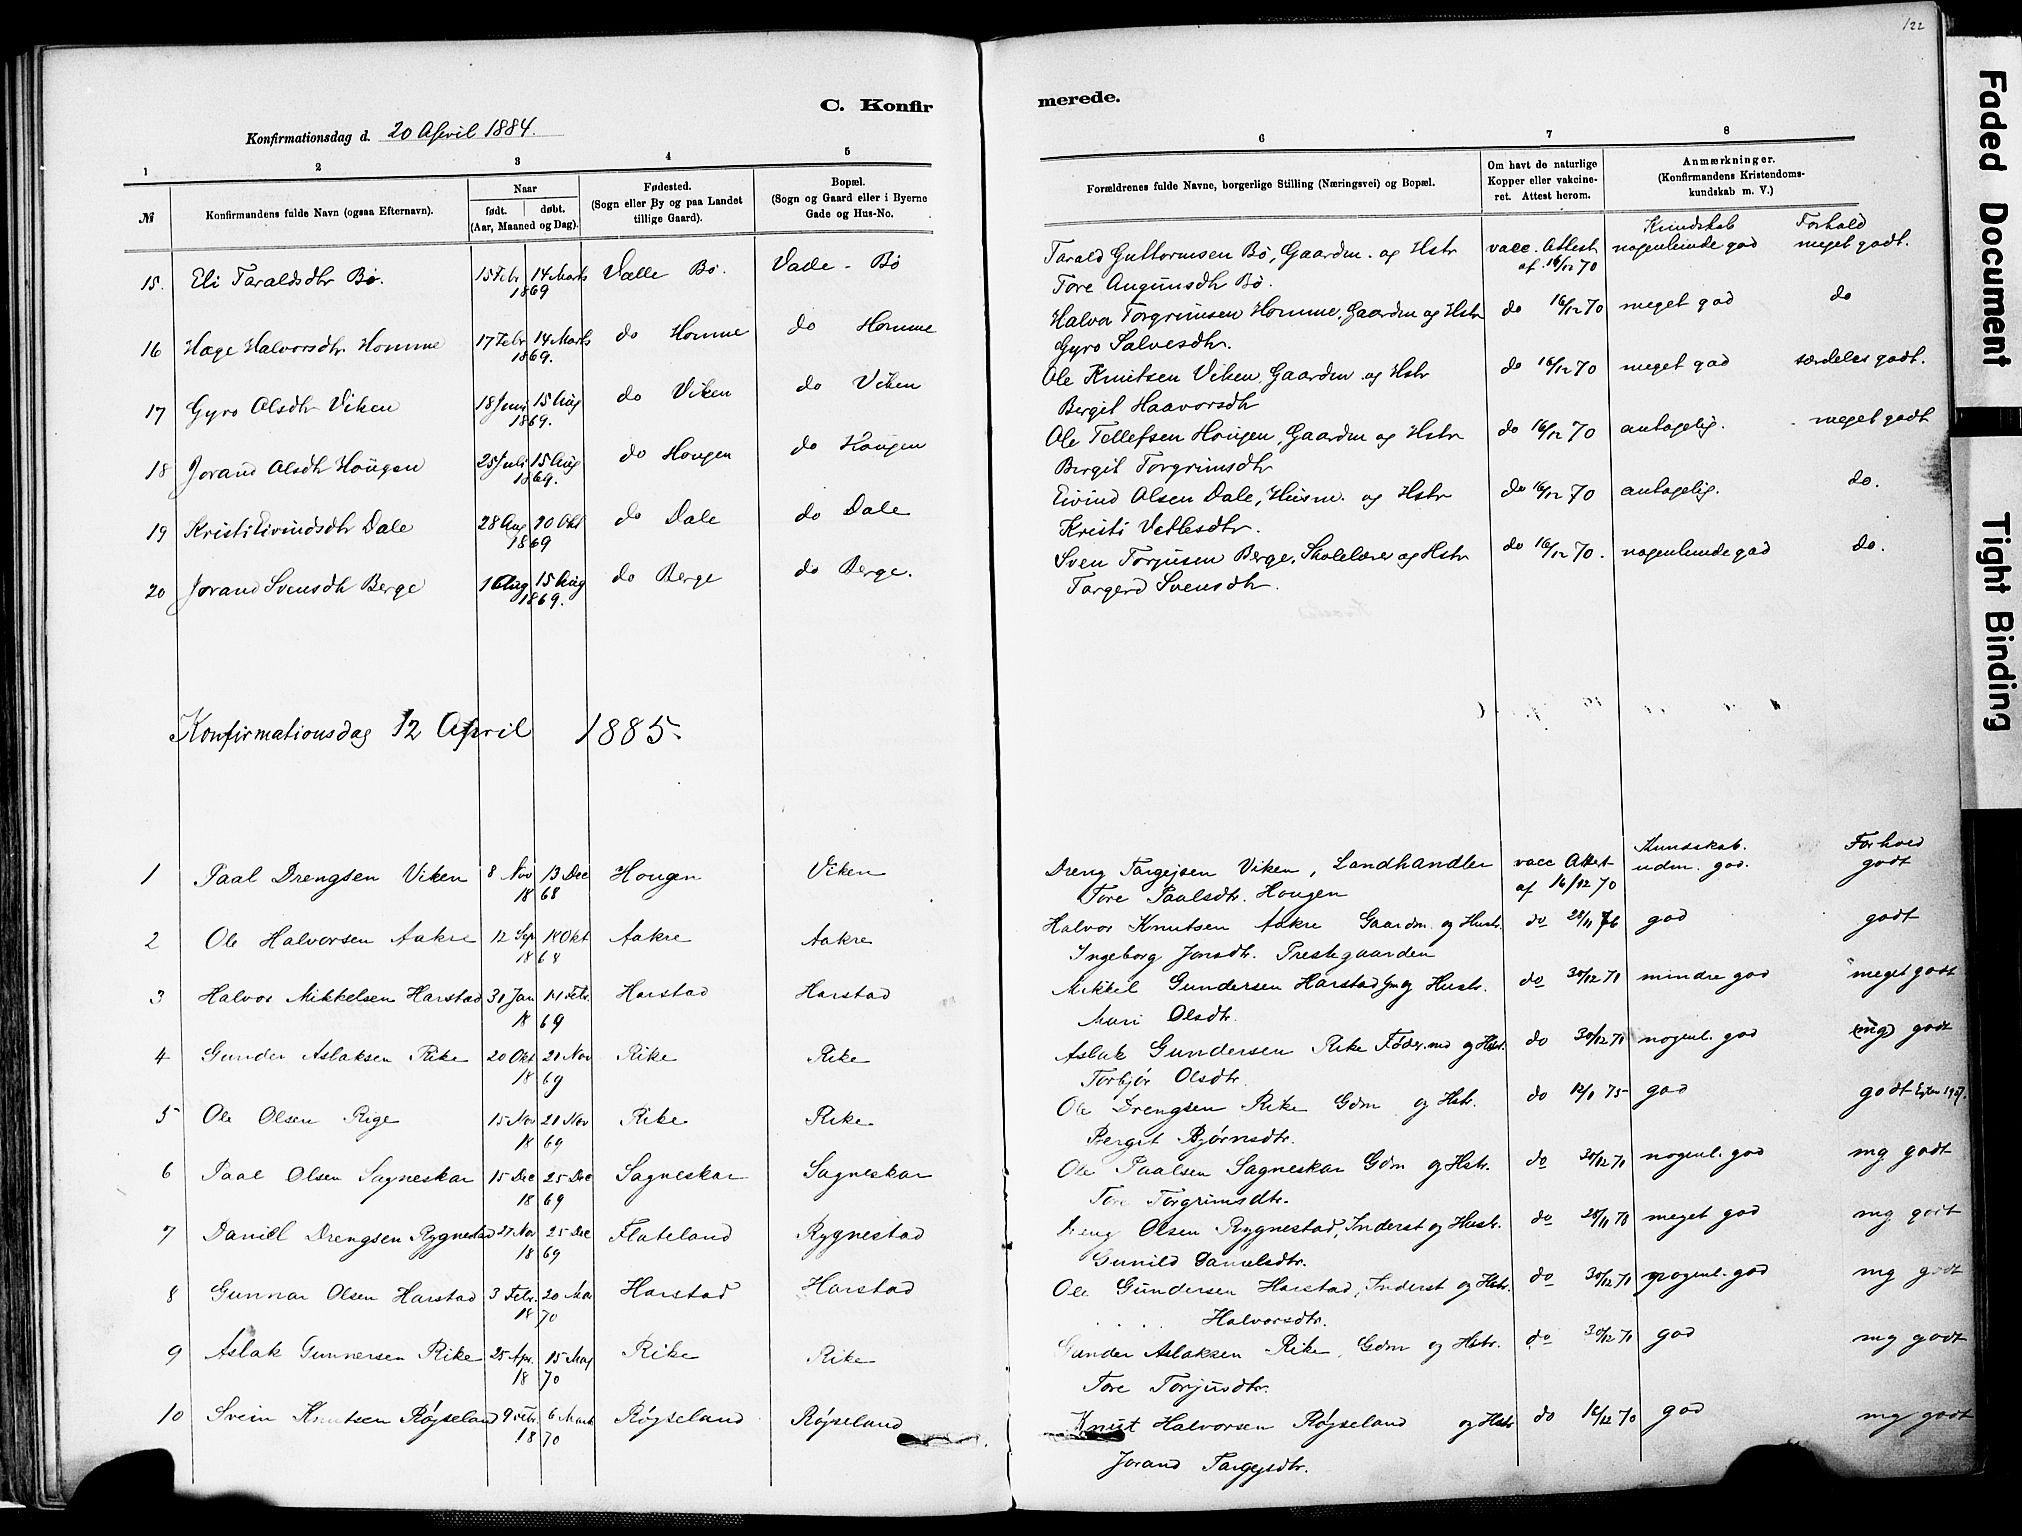 122
C. Konfirmerede.
Konfirmationsdag d. 20 April 1884.
1 2 3 4 5 6 7 8
№
Konfirmandens fulde Navn (ogsaa Efternavn).
Naar
født. døbt.
(Aar, Maaned og Dag).
Fødested.
(Sogn eller By og paa Landet
tillige Gaard).
Bopæl.
(Sogn og Gaard eller i Byerne
Gade og Hus-No.
Forældrenes fulde Navne, borgerlige Stilling (Næringsvei) og Bopæl.
Om havt de naturlige
Kopper eller vakcine-
ret. Attest herom.
Anmærkninger.
(Konfirmandens Kristendoms-
kundskab m. V.)
Kundskab Forhold
15. Eli Taraldsdtr Bø. 15 Febr 14 Marts 1869 Valle Bø. Valle - Bø Tarald Guttormsen Bø, Gaardm. og Hstr vacc. Attest nogenlunde god meget godt.
Tore Augunsdtr Bø. af 16/12 70
16 Hæge Halvorsdtr Homme 17 Febr 14 Marts 1869. do Homme do Homme Halvor Torgrimsen Homme, Gaardm og Hstr do 16/12 70 meget god do
Gyro Salvesdtr.
17 Gyro Olsdtr Viken 18 Juni 15 Aug 1869. do Viken do Viken Ole Knutsen Viken, Gaardm og Hstr do 16/12 70 meget god særdeles godt.
Bergit Haavorsdtr
18 Jorand Olsdtr Hougen 25 Juli 15 Aug 1869. do Hougen do Hougen Ole Tellefsen Hougen, Gaardm og Hstr do 16/12 70 antagelig. meget godt
Bergit Torgrimsdtr
19 Kristi Eivindsdtr Dale 28 Aug 20 Okt 1869 do Dale do Dale Eivind Olsen Dale, Husm. og Hstr do 16/12 70 antagelig. do.
Kristi Vetlesdtr.
20 Jorand Svensdtr Berge 1 Aug 15 Aug 1869. do Berge do Berge. Sven Torjusen Berge, Skolelærer og Hstr do 16/12 70. nogenlunde god do.
Torgerd Svensdtr.
Konfirmationsdag 12 April 1885.
Kundskab. Forhold
1 Paal Drengsen Viken 8 Nov 13 Dec 1868 Hougen Viken Dreng Targejsen Viken, Landhandler vacc Attest udm. god. godt
Tore Paalsdtr. Hougen af 16/12 70
2 Ole Halvorsen Aakre 12 Sep 18 Okt 1868 Aakre Aakre Halvor Knutsen Aakre Gaardm. og Hustr. do 28/11 76 god godt
Ingeborg Jonsdtr. Prestegaarden
3 Halvor Mikkelsen Harstad 30 Jan 14 Febr. 1869 Harstad Harstad Mikkel Gundersen Harstad Gm og Hustr. do 30/12 70 mindre god meget godt
Mari Olsdtr.
4 Gunder Aslaksen Rike 20 Okt 20 Nov 1869 Rike Rike Aslak Gundersen Rike Føder.md og Hstr. do 30/12 70 nogenl. god (mg) godt
Torbjør Olsdtr.
5 Ole Olsen Rige 15 Nov 20 Nov 1869 Rike Rike Ole Drengsen Rike Gdm og Hstr. do 12/1 75 god godt
Bergit Bjørnsdtr.
6 Paal Olsen Sagneskar 15 Dec 25 Dec 1869 Sagneskar Sagneskar Ole Paalsen Sagneskar Gdm og Hstr. do 30/12 70 nogenl. god mg godt
Tore Torgrimsdtr.
7 Daniel Drengsen Rygnestad 27 Nov 25 Dec 1869 Flateland Rygnestad Dreng Olsen Rygnestad, Inderst og Hustr. do 28/11 70 meget god mg godt
Gunild Danielsdtr.
8 Gunnar Olsen Harstad 3 Febr. 20 Mar 1870 Harstad Harstad Ole Gundersen Harstad, Inderst og Hstr. do 30/12 70 nogenl. god mg godt
Halvorsdtr.
9 Aslak Gunnersen Rike 25 Apr. 15 Maj 1870 Rike Rike Gunder Aslaksen Rike, Gdm og Hstr. do 30/12 70 god mg godt
Tore Torjusdtr.
10 Svein Knutsen Røjseland 9 Febr. 6 Marts 1870 Røjseland Røjseland Knut Halvorsen Røjseland og Hstr do 16/12 70 god mg godt
Jorand Targejsdtr.
Faded Document
Tight Binding